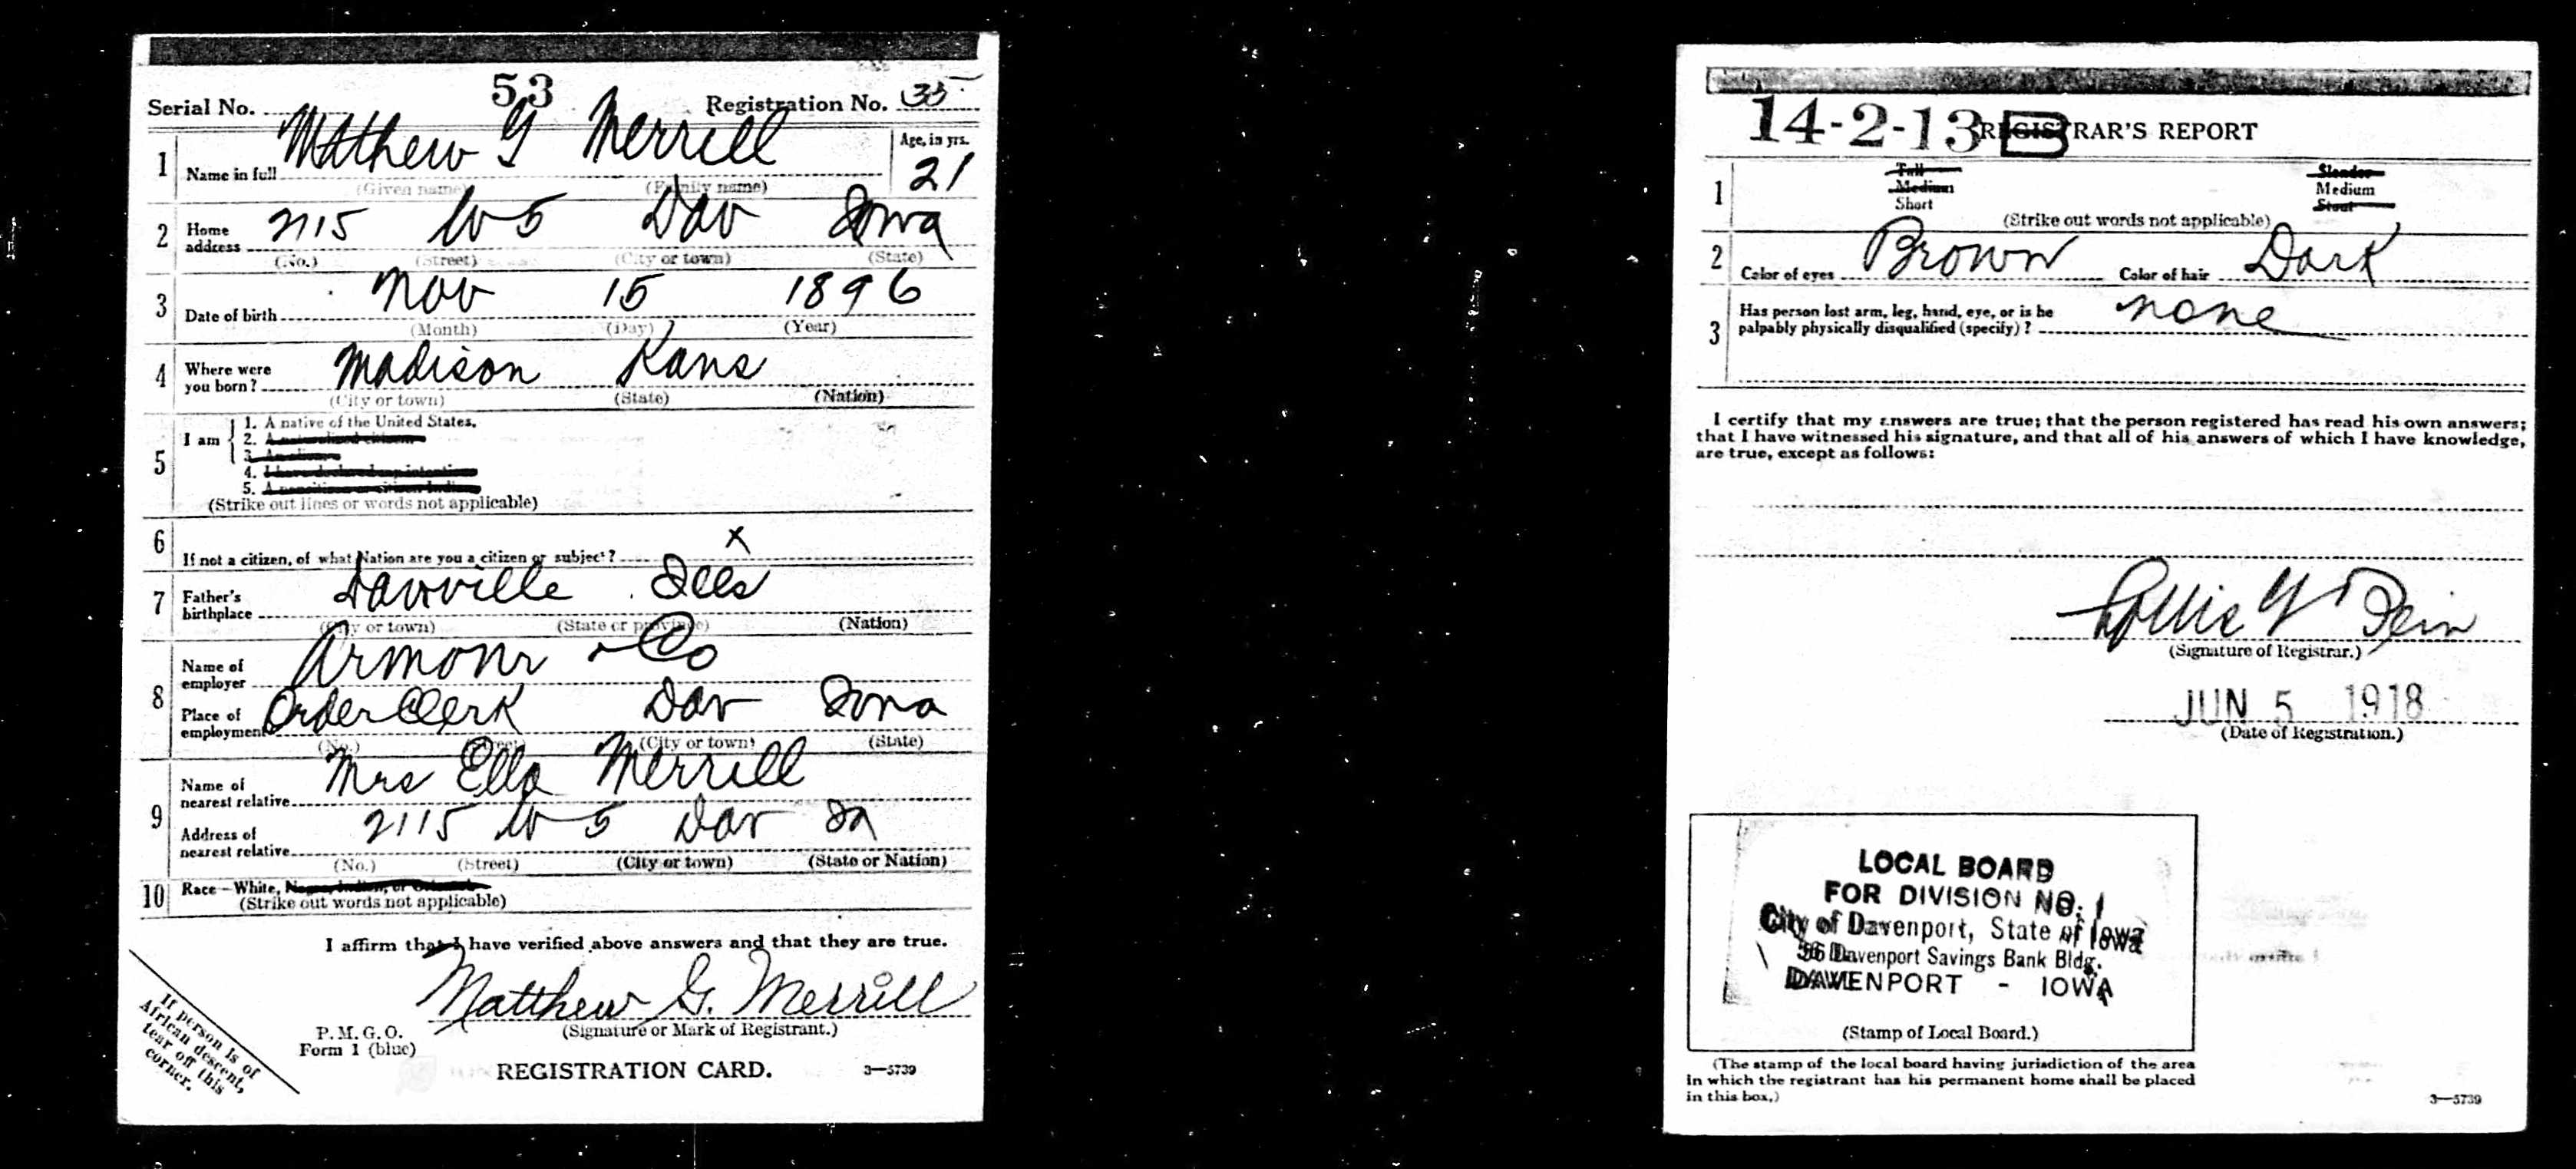 Serial No. 53 Registration No. 35
1 Name in full Mathew G Merrill Age, in yrs. 21
(Given name) (Family name)
2 Home address 2115 W 5 Dav Iowa
(No.) (Street) (City or town) (State)
3 Date of birth Nov 15 1896
(Month) (Day) (Year)
4 Where were you born? Madison Kans
(City or town) (State) (Nation)
5 I am 1. A native of the United States.
2. A naturalized citizen
3. An alien
4. I have declared my intention
5. A noncitizen or citizen Indian
(Strike out lines or words not applicable)
6 If not a citizen, of what Nation are you a citizen or subject? x
7 Father's birthplace Danville Ills
(City or town) (State or province) (Nation)
8 Name of employer Armour & Co
Place of employment Order Clerk Dav Iowa
(No.) (Street) (City or town) (State)
9 Name of nearest relative Mrs Ella Merrill
Address of nearest relative 2115 W 5 Dav Ia
(No.) (Street) (City or town) (State or Nation)
10 Race—White, Negro, Indian, or Oriental
(Strike out words not applicable)
I affirm that I have verified above answers and that they are true.
Matthew G. Merrill
(Signature or Mark of Registrant.)
P. M. G. O.
Form 1 (blue)
REGISTRATION CARD. 3—5739
If person is of
African descent,
tear off this
corner.
14-2-13 B REGISTRAR'S REPORT
1 Tall Slender
Medium Medium
Short Stout
(Strike out words not applicable)
2 Color of eyes Brown Color of hair Dark
3 Has person lost arm, leg, hand, eye, or is he
palpably physically disqualified (specify)? none
I certify that my answers are true; that the person registered has read his own answers;
that I have witnessed his signature, and that all of his answers of which I have knowledge,
are true, except as follows:
(Signature of Registrar.)
JUN 5 1918
(Date of Registration.)
LOCAL BOARD
FOR DIVISION NO. 1
City of Davenport, State of Iowa
56 Davenport Savings Bank Bldg.
DAVENPORT - IOWA
(Stamp of Local Board.)
(The stamp of the local board having jurisdiction of the area
in which the registrant has his permanent home shall be placed
in this box.)
3—5739